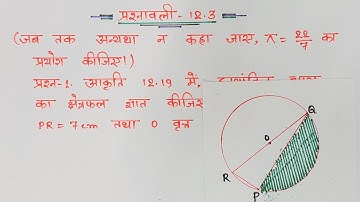 प्रश्नावली - 12.3
(जब तक अन्यथा न कहा जाए, π = 22/7 का
प्रयोग कीजिए।)
प्रश्न-1. आकृति 12.19 में,
का क्षेत्रफल ज्ञात कीजिए
PR = 7 cm तथा O वृत्त
Q
O
R
P